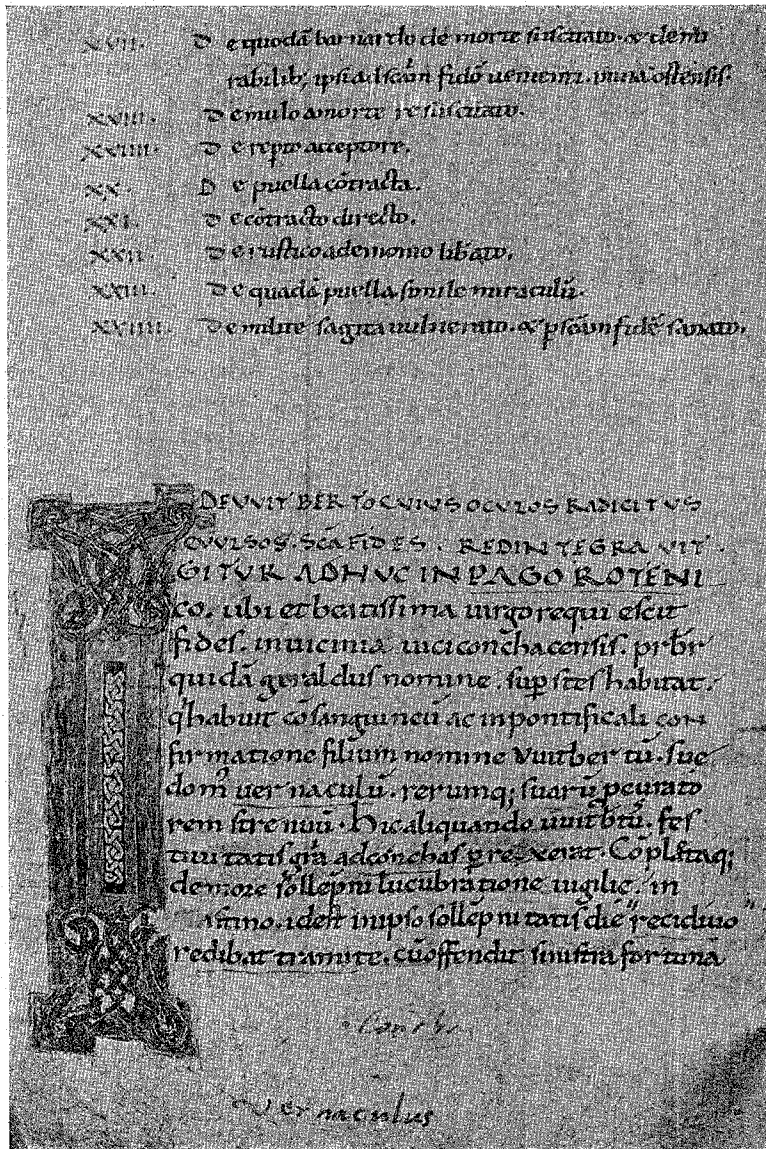 XVII. De quodā barnardo de morte suscitato. & de mi
rabilib; ipsi ad scām fidē venienti. divina ostensis.
XVIII. De mulo a morte resuscitato.
XVIIII. De repto acceptore.
XX. De puella cōtracta.
XXI. De cōtracto directo.
XXII. De rustico a demonio libato.
XXIII. De quadā puella simile miraculū.
XXVIIII. De milite sagita vulnerato. & p scām fidē sanato.
DE VVITBERTO CVIVS OCVLOS RADICITVS
EVVLSOS. SCA FIDES. REDINTEGRAVIT.
IGITVR ADHVC IN PAGO ROTENI
CO. ubi et beatissima virgo requiescit
fides. in vicinia vici conchacensis. prbr
quidā geraldus nomine. supstes habitat.
q habuit cōsanguineū ac in pontificali con
firmatione filium nomine vvitbertū. sue
dom' vernaculū. rerumq; suarū pcurato
rem strenuū. Hic aliquando vvitbtū. fes
tivitatis grā ad conchas prexerat. Cōpletaq;
de more sollēpni lucubratione vigilie. in
astino. id est in ipso sollēpnitatis die "recidivo"
redibat tramite. cū offendit sinistra fortuna
vernaculus